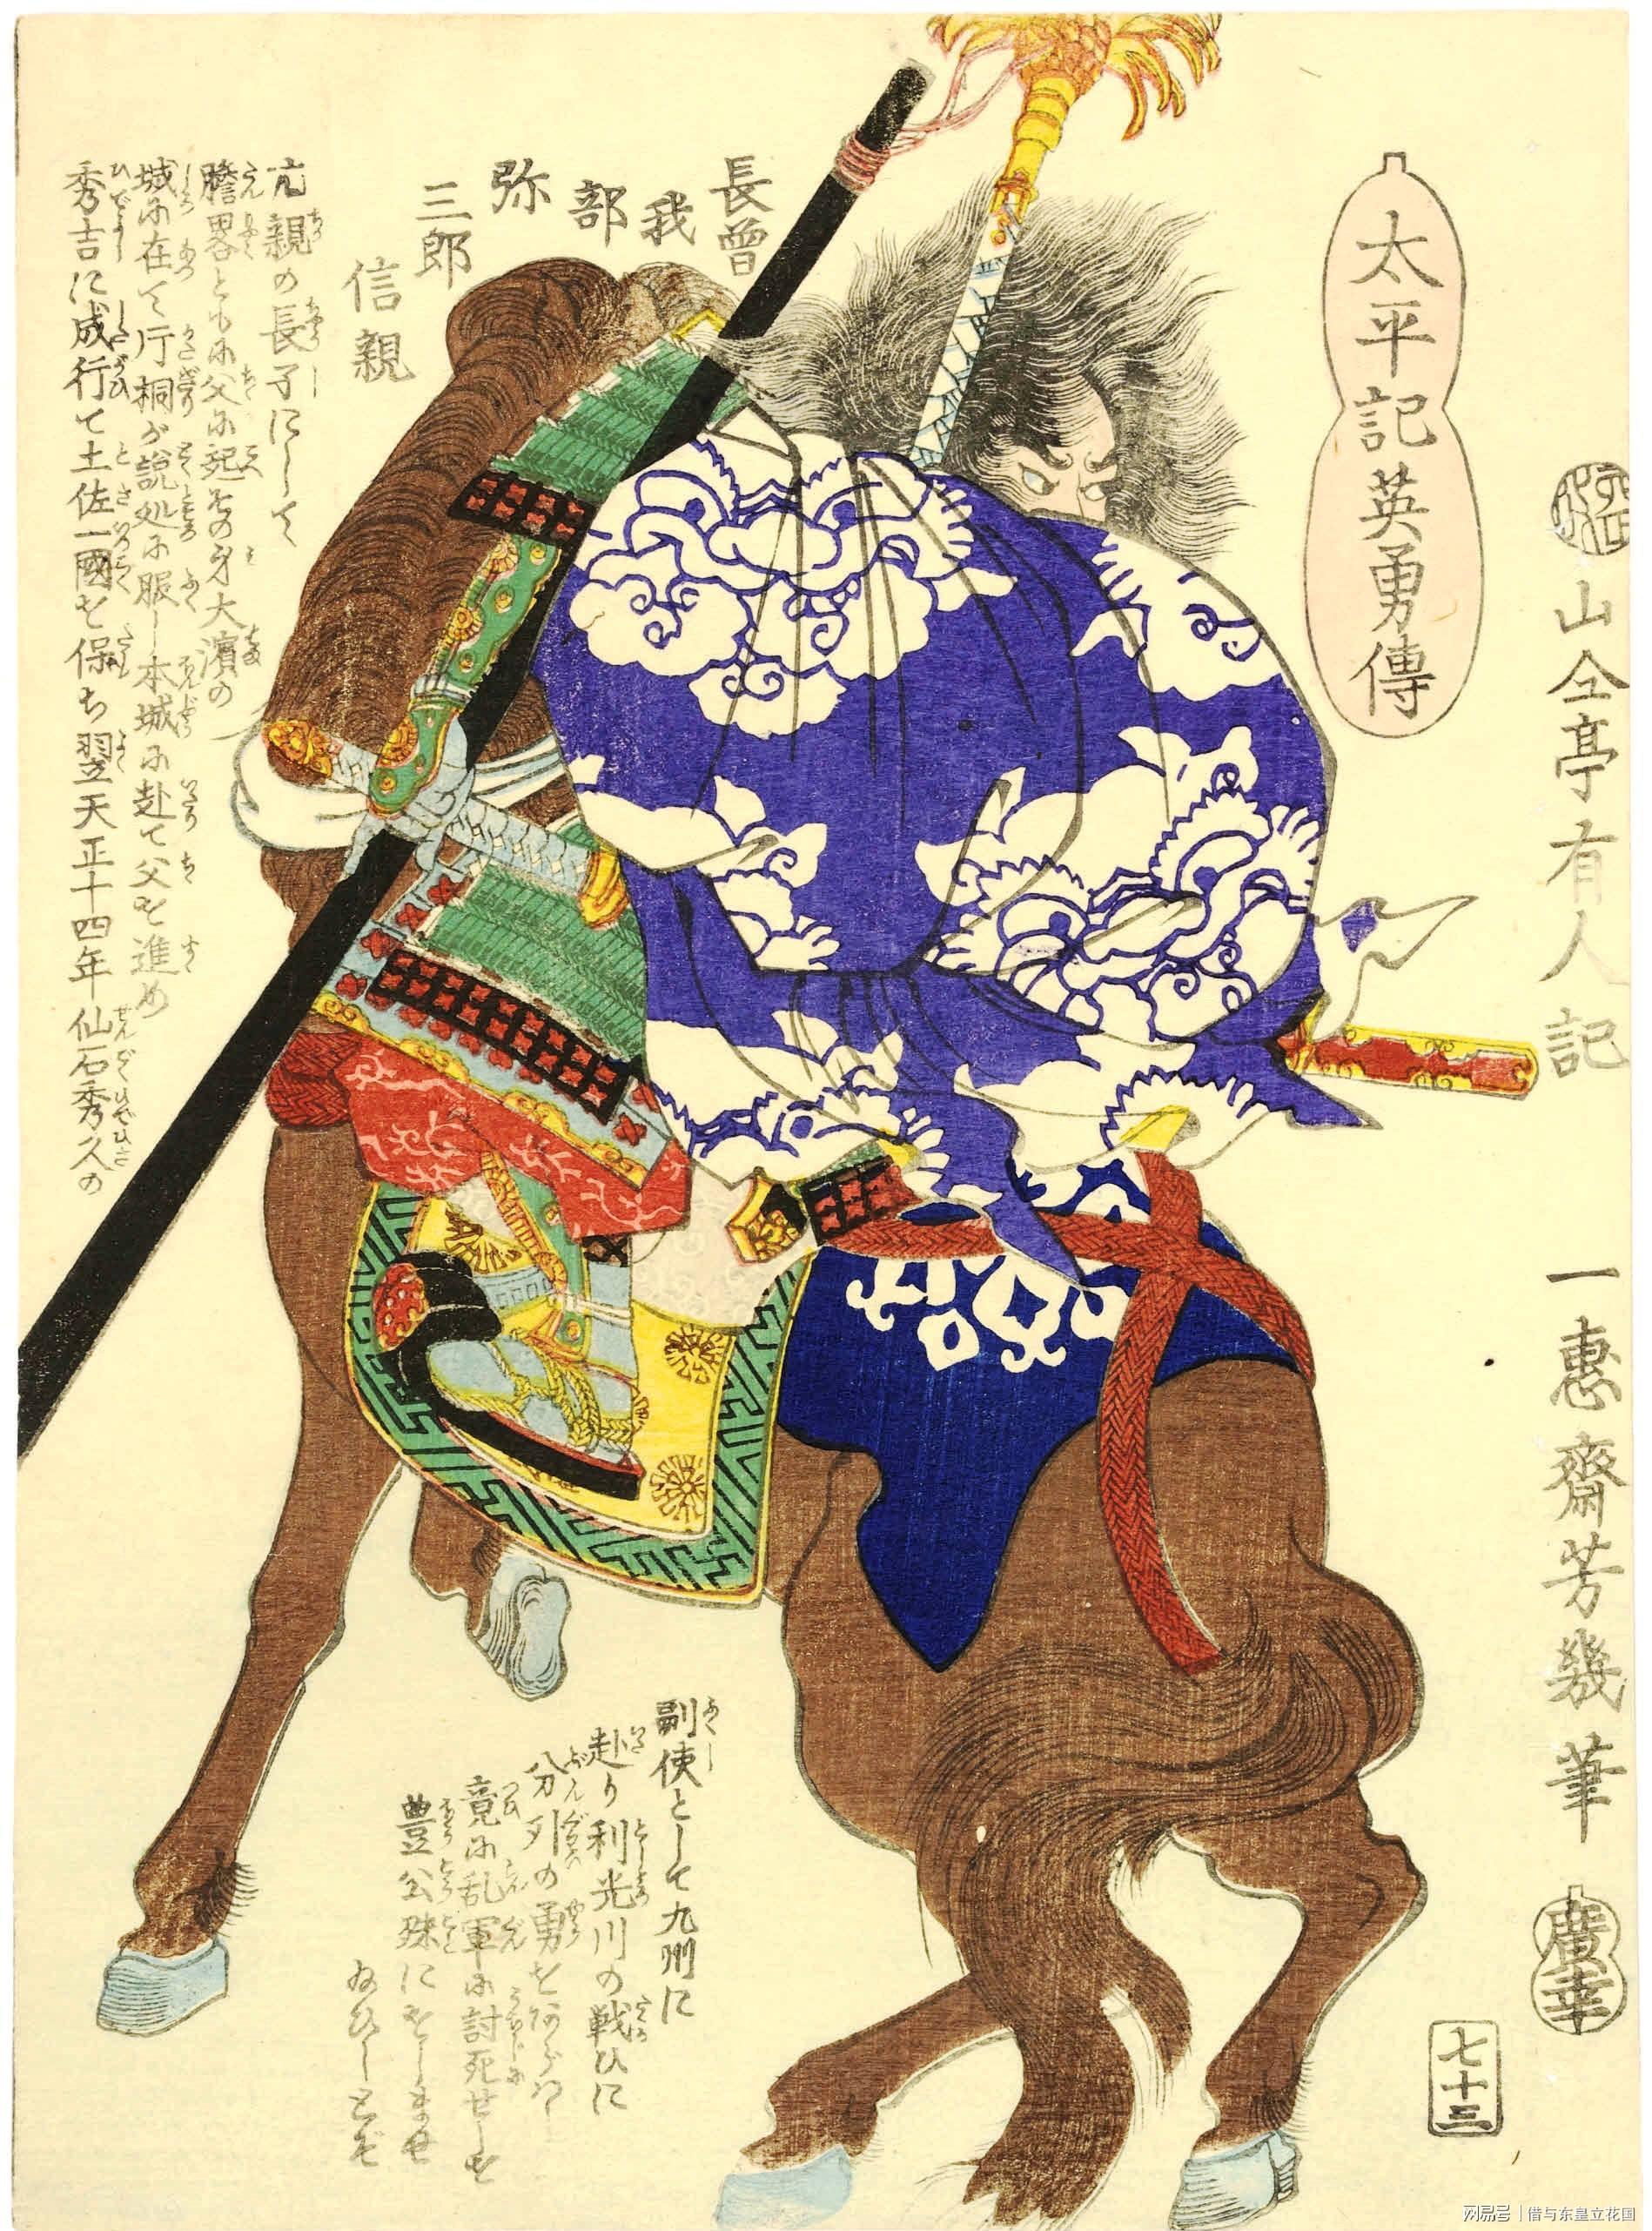 太平記英勇傳
山仝亭有人記
一惠齋芳幾筆
廣幸
七十三
長曽
我
部
弥
三郎
信親
元親の長子にして
膽畧とも尓父尓起その身大濱の
城尓在て片桐が説処尓服し本城尓赴て父を進め
秀吉に成行て土佐一國を保ち翌天正十四年仙石秀久の
副使として九州に
赴り利光川の戦ひに
分列の勇をあらはし
竟尓乱軍尓討死せしを
豊公殊にをしませ
給ひしとぞ
网易号 | 借与东皇立花国